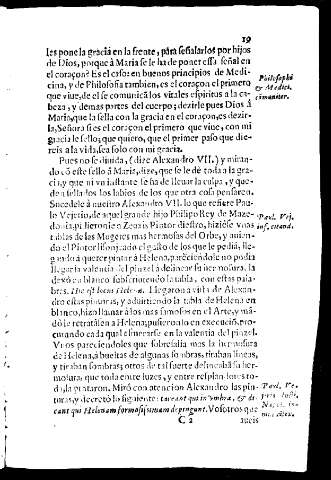 19
les pone la gracia en la frente, para señalarlos por hijos
de Dios, porque à Maria se le ha de poner essa señal en
el coraçon? Es el caso: en buenos principios de Medi-
cina, y de Philosofia tambien, es el coraçon el primero
que viue, de el se comunicã los vitales espiritus a la ca-
beza, y demas partes del cuerpo; dezirle pues Dios â
Maria, que la sella con la gracia en el coraçon, es dezir-
la, Señora si es el coraçon el primero que viue, con mi
gracia le sello; que quiero, que el primer paso que die-
reis a la vida, sea solo con mi gracia.
Philosophi
& Medici,
cõmuniter.
Pues no se diuida, (dize Alexandro VII.) y miran-
do cõ este sello â Maria, dize, que se le dè toda a la gra-
cia, y que ni vn instante se ha de llegar la culpa, y que-
den sellados los labios de los que otra cosa pensaren.
Sucedele à nuestro Alexandro VII. lo que refiere Pau-
lo Vejetio, de aquel grande hijo Philipo Rey de Maze-
donia, pidieron
Pintor diestro, hiziese vnas
tablas de las Mugeres mas hermosas del Orbe, y
do el Pintor lisonjeado el gusto de los que le pediã, lle-
gando â querer pintar à Helena, pareciendole no podia
llegar la valentia del pinzel â delinear su hermosura, la
dexò en blanco sobscriuiendo la tabla, con estas pala-
bras. Hic est locus Helenæ. Llegaron a vista de Alexan-
dro estas pinturas, y aduirtiendo la tabla de Helena en
blanco, hizo llamar â los mas famosos en el Arte, y mã-
dò le retratàsen a Helena, pusieronlo en execuciõ, pro-
curando cada qual esmerarse en la valentia del pinzel.
Vnos pareciendoles que sobresalia mas la hermosura
de Helena, à bueltas de algunas sombras, tiraban lineas,
y tiraban sombras; otros de tal suerte delineabã su her-
mosura, que toda entre luzes, y entre resplandores to-
da la pintaron. Mirò con atencion Alexandro las pin-
turas, y decretò lo siguiente: taceant qui in vmbra, & di-
cant qui Helenam formosissimam depingunt. Vosotros que
Paul. Vej.
Paul. Ve-
C 2
aueis